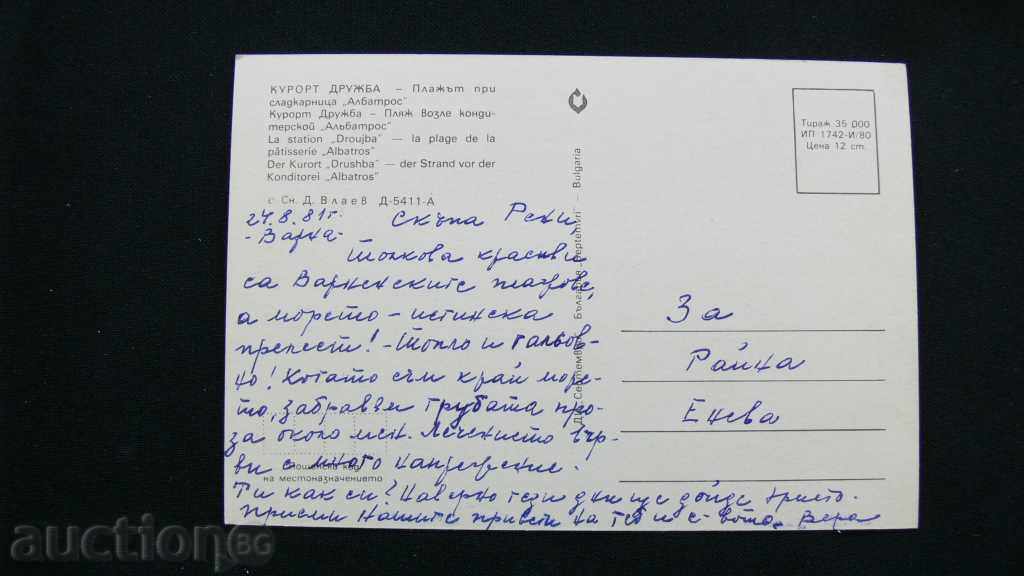 КУРОРТ ДРУЖБА – Плажът при
сладкарница „Албатрос"
Курорт Дружба – Пляж возле конди-
терской „Альбатрос"
La station „Droujba" — la plage de la
pâtisserie „Albatros"
Der Kurort „Drushba" — der Strand vor der
Konditorei „Albatros"
с Сн. Д. Влаев Д-5411-А
24.8.81г. Скъпа Рени,
-Варна-
Толкова красиви
са Варненските плажове,
а морето – истинска
прелест! – Топло и гальов-
но! Когато съм край море-
то, забравям грубата про-
за около мен. Лечението вър-
ви с много напрежение.
Пощенски код
на местоназначението
Ти как си? Наверно тези дни ще дойде Христо.
Приеми нашите привети на теб и с-вото. Вера
ДИ „Септември" България „Septemvri" — Bulgaria
Тираж 35 000
ИП 1742-И/80
Цена 12 ст.
За
Райна
Енева
auction BG